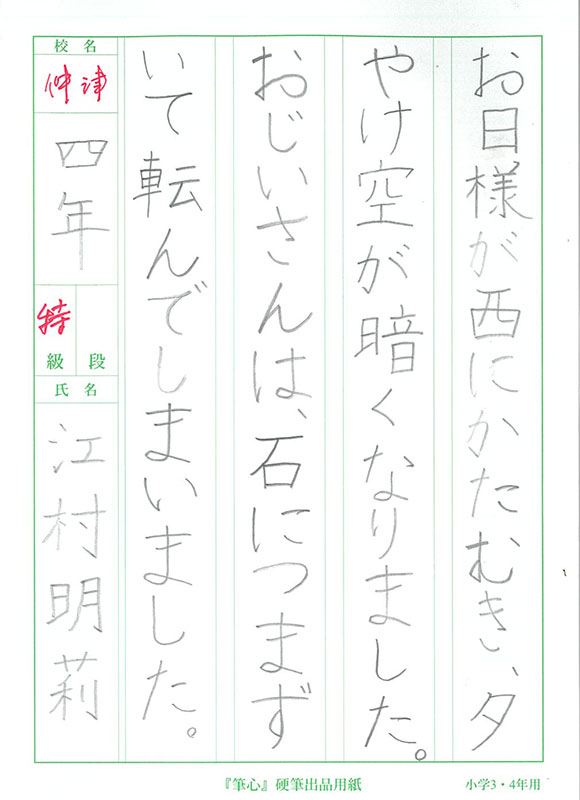 お日様が西にかたむき、夕
やけ空が暗くなりました。
おじいさんは、石につまず
いて転んでしまいました。
校名
仲津
四年
特
級 段
氏名
江村明莉
『筆心』硬筆出品用紙
小学3・4年用